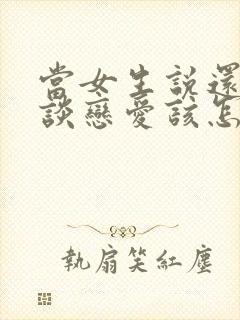 當女生說還
談戀愛該怎
執扇笑紅塵